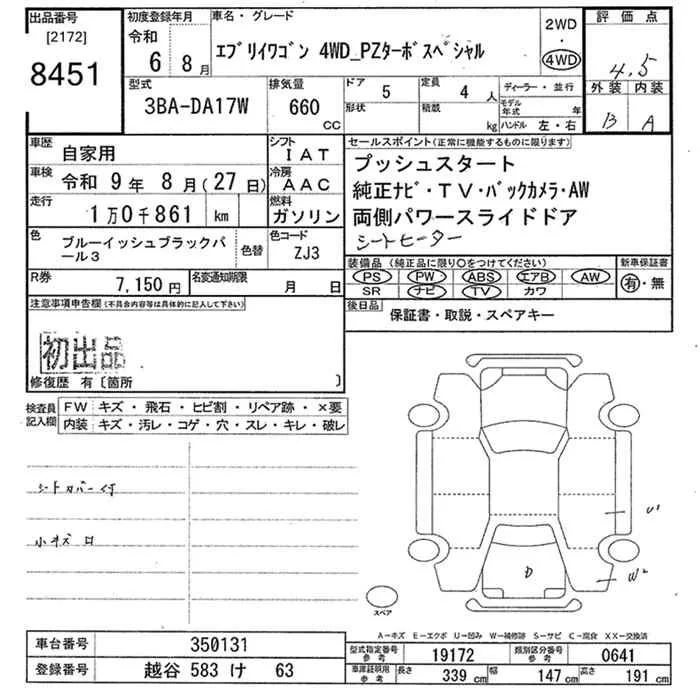 出品番号
[2172]
8451
初度登録年月
令和
6 8月
車名・グレード
エブリイワゴン 4WD_PZターボスペシャル
2WD
・
4WD
評価点
4.5
外装 内装
B A
型式
3BA-DA17W
排気量
660
CC
ドア 5
形状
定員 4 人
積載 kg
ディーラー・並行
モデル年式 年
ハンドル 左・右
車歴 自家用
シフト IAT
車検 令和 9年 8月(27日)
冷房 AAC
走行 1万0千861 km
燃料 ガソリン
色 ブルーイッシュブラックパール3
色替
色コード ZJ3
R券 7,150円
名変通知期限 月 日
セールスポイント(正常に機能するものに限ります)
プッシュスタート
純正ナビ・TV・バックカメラ・AW
両側パワースライドドア
シートヒーター
装備品(純正品に限り〇をつけてください)
PS PW ABS エアB AW
SR ナビ TV カワ
新車保証書
有・無
後日品
保証書・取説・スペアキー
注意事項申告欄(不具合内容等は具体的に記入して下さい)
初出品
修復歴 有〔箇所 〕
検査員記入欄
FW キズ・飛石・ヒビ割・リペア跡・×要
内装 キズ・汚レ・コゲ・穴・スレ・キレ・破レ
シートカバー付
小キズ ロ
U1
W2
D
スペア
A→キズ E→エクボ U→凹み W→補修跡 S→サビ C→腐食 XX→交換済
車台番号 350131
登録番号 越谷 583 け 63
型式指定番号参考 19172
類別区分番号参考 0641
車庫証明用参考 長さ 339 cm 幅 147 cm 高さ 191 cm